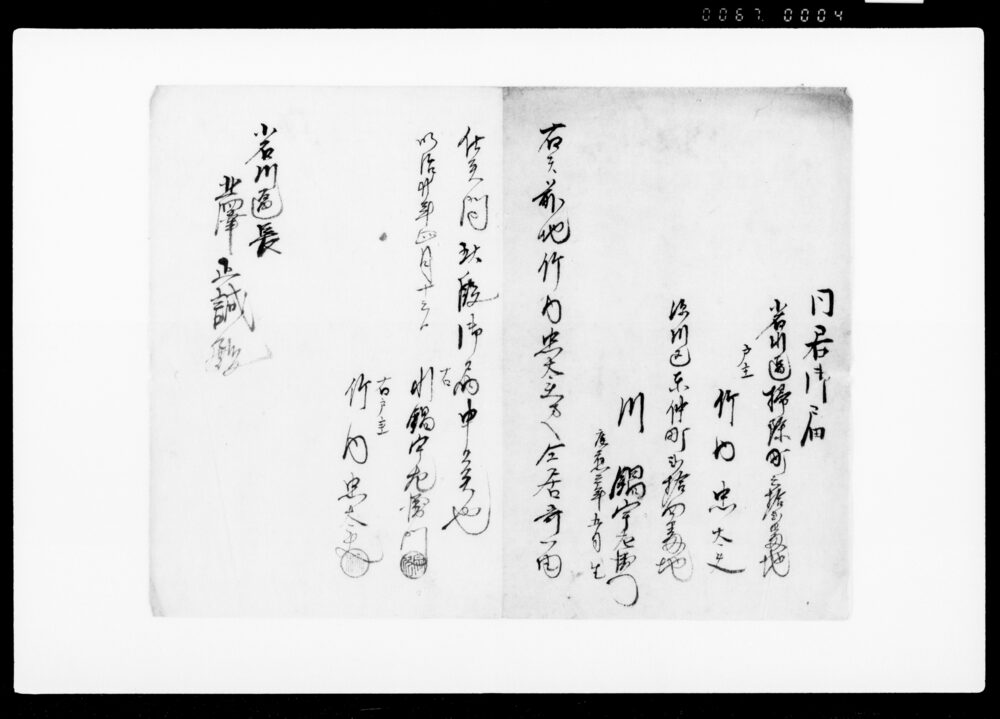 0067. 0004
同居御届
小石川区掃除町三拾三番地
戸主
竹内忠太夫
深川区東仲町五拾四番地
川鍋宇右衛門
慶應三年五月生
右之者前地竹内忠太夫方へ仝居
仕候間此段御届申上候也
明治廿年五月十三日
右
川鍋宇右衛門
右戸主
竹内忠太夫
小石川区長
北澤正誠殿